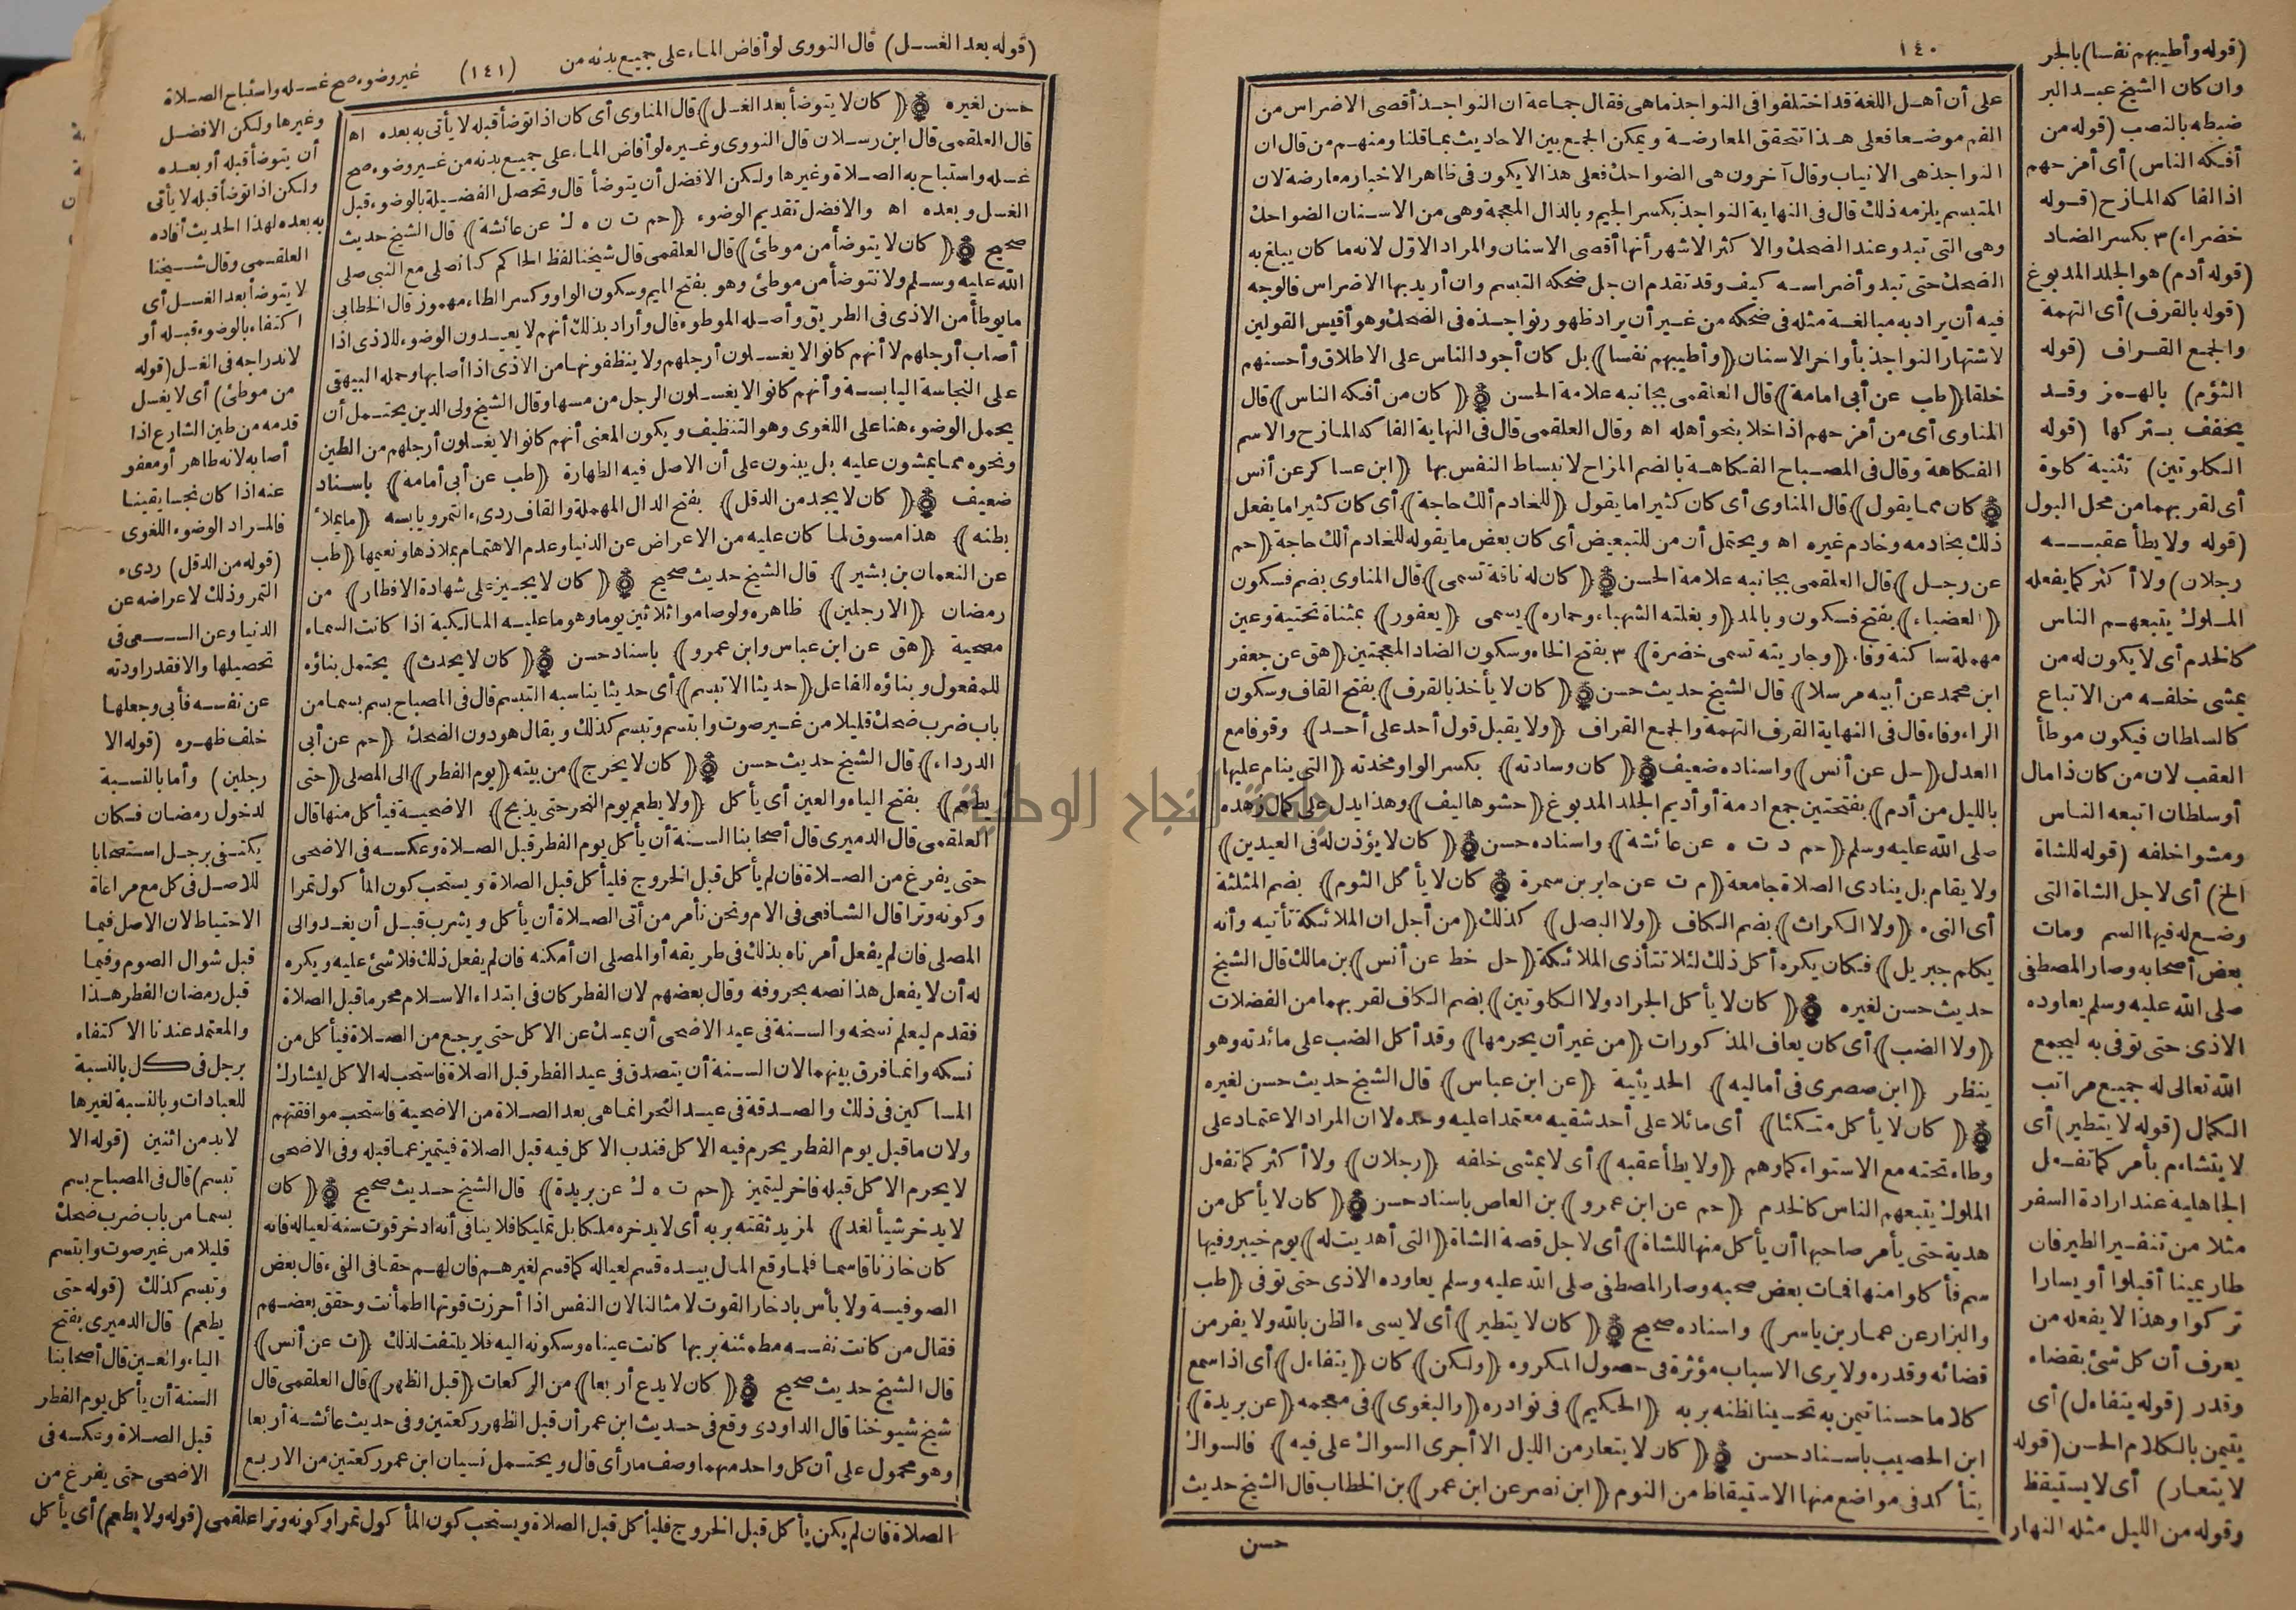 ١٤٠
على أن أهل اللغة قد اختلفوا فى النواجذ ماهى فقال جماعة ان النواجذ أقصى الاضراس من
الفم موضعا فعلى هذا تتحقق المعارضة ويمكن الجمع بين الاحاديث بما قلنا ومنهم من قال ان
النواجذ هى الانياب وقال آخرون هى الضواحك فعلى هذا لا يكون فى ظاهر الاخبار معارضة لان
المتبسم يلزمه ذلك قال فى النهاية النواجذ بكسر الجيم وبالذال المعجمة وهى من الاسنان الضواحك
وهى التى تبدو عند الضحك والاكثر الاشهر أنها أقصى الاسنان والمراد الاوّل لانه ما كان يبلغ به
الضحك حتى تبدو أضراسه كيف وقد تقدم ان جل ضحكه التبسم وان أريد بها الاضراس فالوجه
فيه أن يراد به مبالغة مثله فى ضحكه من غير أن يراد ظهور نواجذه فى الضحك وهو أقيس القولين
لاشتهار النواجذ بأواخر الاسنان ((وأطيبهم نفسا)) بل كان أجود الناس على الاطلاق وأحسنهم
خلقا ((طب عن أبى امامة)) قال العلقمى بجانبه علامة الحسن ((كان من أفكه الناس)) قال
المناوى أى من أمزحهم اذا خلا بنحو أهله اه وقال العلقمى قال فى النهاية الفاكه المازح والاسم
الفكاهة وقال فى المصباح الفكاهة بالضم المزاح لانبساط النفس بها ((ابن عساكر عن أنس
كان مما يقول)) قال المناوى أى كان كثيرا ما يقول ((للخادم ألك حاجة)) أى كان كثيرا ما يفعل
ذلك بخادمه وخادم غيره اه ويحتمل أن من للتبعيض أى كان بعض ما يقوله للخادم ألك حاجة ((حم
عن رجل)) قال العلقمى بجانبه علامة الحسن ((كان له ناقة تسمى)) قال المناوى بضم فسكون
((العضباء)) بفتح فسكون وبالمد ((وبغلته الشهباء وحماره)) يسمى ((يعفور)) بمثناة تحتية وعين
مهملة ساكنة وفاء ((وجاريته تسمى خضرة)) ٣ بفتح الخاء وسكون الضاد المعجمتين ((هق عن جعفر
ابن محمد عن أبيه مرسلا)) قال الشيخ حديث حسن ((كان لا يأخذ بالقرف)) بفتح القاف وسكون
الراء وفاء قال فى النهاية القرف التهمة والجمع القراف ((ولا يقبل قول أحد على أحد)) وقوفا مع
العدل ((حل عن أنس)) واسناده ضعيف ((كان وسادته)) بكسر الواو مخدته ((التى ينام عليها
بالليل من أدم)) بفتحتين جمع ادمة أو أديم الجلد المدبوغ ((حشوها ليف)) وهذا يدل على كمال زهده
صلى الله عليه وسلم ((حم د ت ه عن عائشة)) واسناده حسن ((كان لا يؤذن له فى العيدين))
ولا يقام بل ينادى الصلاة جامعة ((م ت عن جابر بن سمرة كان لا يأكل الثوم)) بضم المثلثة
أى النىء ((ولا الكراث)) بضم الكاف ((ولا البصل)) كذلك ((من أجل ان الملائكة تأتيه وأنه
يكلم جبريل)) فكان يكره أكل ذلك لئلا تتأذى الملائكة ((حل خط عن أنس)) بن مالك قال الشيخ
حديث حسن لغيره ((كان لا يأكل الجراد ولا الكلوتين)) بضم الكاف لقربهما من الفضلات
((ولا الضب)) أى كان يعاف المذكورات ((من غير أن يحرمها)) وقد أكل الضب على مائدته وهو
ينظر ((ابن صصرى فى أماليه)) الحديثية ((عن ابن عباس)) قال الشيخ حديث حسن لغيره
((كان لا يأكل متكئا)) أى مائلا على أحد شقيه معتمدا عليه وحده لا ان المراد الاعتماد على
وطاء تحته مع الاستواء كما وهم ((ولا يطأ عقبه)) أى لا يمشى خلفه ((رجلان)) ولا أكثر كما تفعل
الملوك يتبعهم الناس كالخدم ((حم عن ابن عمرو)) بن العاص باسناد حسن ((كان لا يأكل من
هدية حتى يأمر صاحبها أن يأكل منها للشاة)) أى لاجل قصة الشاة ((التى أهديت له)) يوم خيبر وفيها
سم فأكلوا منها فمات بعض صحبه وصار المصطفى صلى الله عليه وسلم يعاوده الاذى حتى توفى ((طب
والبزار عن عمار بن ياسر)) واسناده صحيح ((كان لا يتطير)) أى لا يسىء الظن بالله ولا يفر من
قضائه وقدره ولا يرى الاسباب مؤثرة فى حصول المكروه ((ولكن)) كان ((يتفاءل)) أى اذا سمع
كلاما حسنا تيمن به تحسينا لظنه بربه ((الحكيم)) فى نوادره ((والبغوى)) فى معجمه ((عن بريدة))
ابن الحصيب باسناد حسن ((كان لا يتعار من الليل الا أجرى السواك على فيه)) فالسواك
يتأكد فى مواضع منها الاستيقاظ من النوم ((ابن نصر عن ابن عمر)) بن الخطاب قال الشيخ حديث
حسن
(قوله وأطيبهم نفسا) بالجر
وان كان الشيخ عبد البر
ضبطه بالنصب (قوله من
أفكه الناس) أى أمزحهم
اذ الفاكه المازح (قوله
خضراء) ٣ بكسر الضاد
(قوله أدم) هو الجلد المدبوغ
(قوله بالقرف) أى التهمة
والجمع القراف (قوله
الثوم) بالهمز وقد
يخفف بتركها (قوله
الكلوتين) تثنية كلوة
أى لقربهما من محل البول
(قوله ولا يطأ عقبه
رجلان) ولا أكثر كما يفعله
الملوك يتبعهم الناس
كالخدم أى لا يكون له من
يمشى خلفه من الاتباع
كالسلطان فيكون موطأ
العقب لان من كان ذا مال
أو سلطان اتبعه الناس
ومشوا خلفه (قوله للشاة
الخ) أى لاجل الشاة التى
وضع له فيها السم ومات
بعض أصحابه وصار المصطفى
صلى الله عليه وسلم يعاوده
الاذى حتى توفى به ليجمع
الله تعالى له جميع مراتب
الكمال (قوله لا يتطير) أى
لا يتشاءم بأمر كما تفعل
الجاهلية عند ارادة السفر
مثلا من تنفير الطير فان
طار يمينا أقبلوا أو يسارا
تركوا وهذا لا يفعله من
يعرف أن كل شئ بقضاء
وقدر (قوله يتفاءل) أى
يتيمن بالكلام الحسن (قوله
لا يتعار) أى لا يستيقظ
وقوله من الليل مثله النهار
(قوله بعد الغسل) قال النووى لو أفاض الماء على جميع بدنه من (١٤١) غير وضوء صح غسله واستباح الصلاة
حسن لغيره ((كان لا يتوضأ بعد الغسل)) قال المناوى أى كان اذا توضأ قبله لا يأتى به بعده اه
قال العلقمى قال ابن رسلان قال النووى وغيره لو أفاض الماء على جميع بدنه من غير وضوء صح
غسله واستباح به الصلاة وغيرها ولكن الافضل أن يتوضأ قال وتحصل الفضيلة بالوضوء قبل
الغسل وبعده اه والافضل تقديم الوضوء ((حم ت ن ه ك عن عائشة)) قال الشيخ حديث
صحيح ((كان لا يتوضأ من موطئ)) قال العلقمى قال شيخنا لفظ الحاكم كنا نصلى مع النبى صلى
الله عليه وسلم ولا نتوضأ من موطئ وهو بفتح الميم وسكون الواو وكسر الطاء مهموز قال الخطابى
ما يوطأ من الاذى فى الطريق وأصله الموطوء قال وأراد بذلك أنهم لا يعيدون الوضوء للاذى اذا
أصاب أرجلهم لا أنهم كانوا لا يغسلون أرجلهم ولا ينظفونها من الاذى اذا أصابها وحمله البيهقى
على النجاسة اليابسة وأنهم كانوا لا يغسلون الرجل من مسها وقال الشيخ ولى الدين يحتمل أن
يحمل الوضوء هنا على اللغوى وهو التنظيف ويكون المعنى أنهم كانوا لا يغسلون أرجلهم من الطين
ونحوه مما يمشون عليه بل يبنون على أن الاصل فيه الطهارة ((طب عن أبى أمامة)) باسناد
ضعيف ((كان لا يجد من الدقل)) بفتح الدال المهملة والقاف ردىء التمر ويابسه ((ما يملأ
بطنه)) هذا مسوق لما كان عليه من الاعراض عن الدنيا وعدم الاهتمام بملاذها ونعيمها ((طب
عن النعمان بن بشير)) قال الشيخ حديث صحيح ((كان لا يجيز على شهادة الافطار)) من
رمضان ((الا رجلين)) ظاهره ولو صاموا ثلاثين يوما وهو ما عليه المالكية اذا كانت السماء
مصحية ((هق عن ابن عباس وابن عمرو)) باسناد حسن ((كان لا يحدث)) يحتمل بناؤه
للمفعول وبناؤه للفاعل ((حديثا الا تبسم)) أى حديثا يناسبه التبسم قال فى المصباح بسم بسما من
باب ضرب ضحك قليلا من غير صوت وابتسم وتبسم كذلك ويقال هو دون الضحك ((حم عن أبى
الدرداء)) قال الشيخ حديث حسن ((كان لا يخرج)) من بيته ((يوم الفطر)) الى المصلى ((حتى
يطعم)) بفتح الياء والعين أى يأكل ((ولا يطعم يوم النحر حتى يذبح)) الاضحية فيأكل منها قال
العلقمى قال الدميرى قال أصحابنا السنة أن يأكل يوم الفطر قبل الصلاة وعكسه فى الاضحى
حتى يفرغ من الصلاة فان لم يأكل قبل الخروج فليأكل قبل الصلاة ويستحب كون المأكول تمرا
وكونه وترا قال الشافعى فى الام ونحن نأمر من أتى الصلاة أن يأكل ويشرب قبل أن يغدو الى
المصلى فان لم يفعل أمرناه بذلك فى طريقه أو المصلى ان أمكنه فان لم يفعل ذلك فلا شئ عليه ويكره
له أن لا يفعل هذا نصه بحروفه وقال بعضهم لان الفطر كان فى ابتداء الاسلام محرما قبل الصلاة
فقدم ليعلم نسخه والسنة فى عيد الاضحى أن يمسك عن الاكل حتى يرجع من الصلاة فيأكل من
نسكه وانما فرق بينهما لان السنة أن يتصدق فى عيد الفطر قبل الصلاة فاستحب له الاكل ليشارك
المساكين فى ذلك والصدقة فى عيد النحر انما هى بعد الصلاة من الاضحية فاستحب موافقتهم
ولان ما قبل يوم الفطر يحرم فيه الاكل فندب الاكل فيه قبل الصلاة فيتميز عما قبله وفى الاضحى
لا يحرم الاكل قبله فاخر ليتميز ((حم ت ه ك عن بريدة)) قال الشيخ حديث صحيح ((كان
لا يدخر شيأ لغد)) لمزيد ثقته بربه أى لا يدخره ملكا بل تمليكا فلا ينافى أنه ادخر قوت سنة لعياله فانه
كان خازنا قاسما فلما وقع المال بيده قسم لعياله كما قسم لغيرهم فان لهم حقا فى الفىء قال بعض
الصوفية ولا بأس بادخار القوت لامثالنا لان النفس اذا أحرزت قوتها اطمأنت وحقق بعضهم
فقال من كانت نفسه مطمئنة بربها كانت عيناه وسكونه اليه فلا يلتفت لذلك ((ت عن أنس))
قال الشيخ حديث صحيح ((كان لا يدع أربعا)) من الركعات ((قبل الظهر)) قال العلقمى قال
شيخ شيوخنا قال الداودى وقع فى حديث ابن عمر أن قبل الظهر ركعتين وفى حديث عائشة أربعا
وهو محمول على أن كل واحد منهما وصف ما رأى قال ويحتمل نسيان ابن عمر ركعتين من الاربع
وغيرها ولكن الافضل
أن يتوضأ قبله أو بعده
ولكن اذا توضأ قبله لا يأتى
به بعده لهذا الحديث أفاده
العلقمى وقال شيخنا
لا يتوضأ بعد الغسل أى
اكتفاء بالوضوء قبله أو
لاندراجه فى الغسل (قوله
من موطئ) أى لا يغسل
قدمه من طين الشارع اذا
أصابه لانه طاهر أو معفو
عنه اذا كان نجسا يقينا
فالمراد الوضوء اللغوى
(قوله من الدقل) ردىء
التمر وذلك لاعراضه عن
الدنيا وعن السعى فى
تحصيلها والا فقد راودته
عن نفسه فأبى وجعلها
خلف ظهره (قوله الا
رجلين) وأما بالنسبة
لدخول رمضان فكان
يكتفى برجل استصحابا
للاصل فى كل مع مراعاة
الاحتياط لان الاصل فيما
قبل شوال الصوم وفيما
قبل رمضان الفطر هذا
والمعتمد عندنا الاكتفاء
برجل فى كل بالنسبة
للعبادات وبالنسبة لغيرها
لابد من اثنين (قوله الا
تبسم) قال فى المصباح بسم
بسما من باب ضرب ضحك
قليلا من غير صوت وابتسم
وتبسم كذلك (قوله حتى
يطعم) قال الدميرى بفتح
الياء والعين قال أصحابنا
السنة أن يأكل يوم الفطر
قبل الصلاة وعكسه فى
الاضحى حتى يفرغ من
الصلاة فان لم يكن يأكل قبل الخروج فليأكل قبل الصلاة ويستحب كون المأكول تمرا وكونه وترا علقمى (قوله ولا يطعم) أى يأكل
جامعة النجاح الوطنية